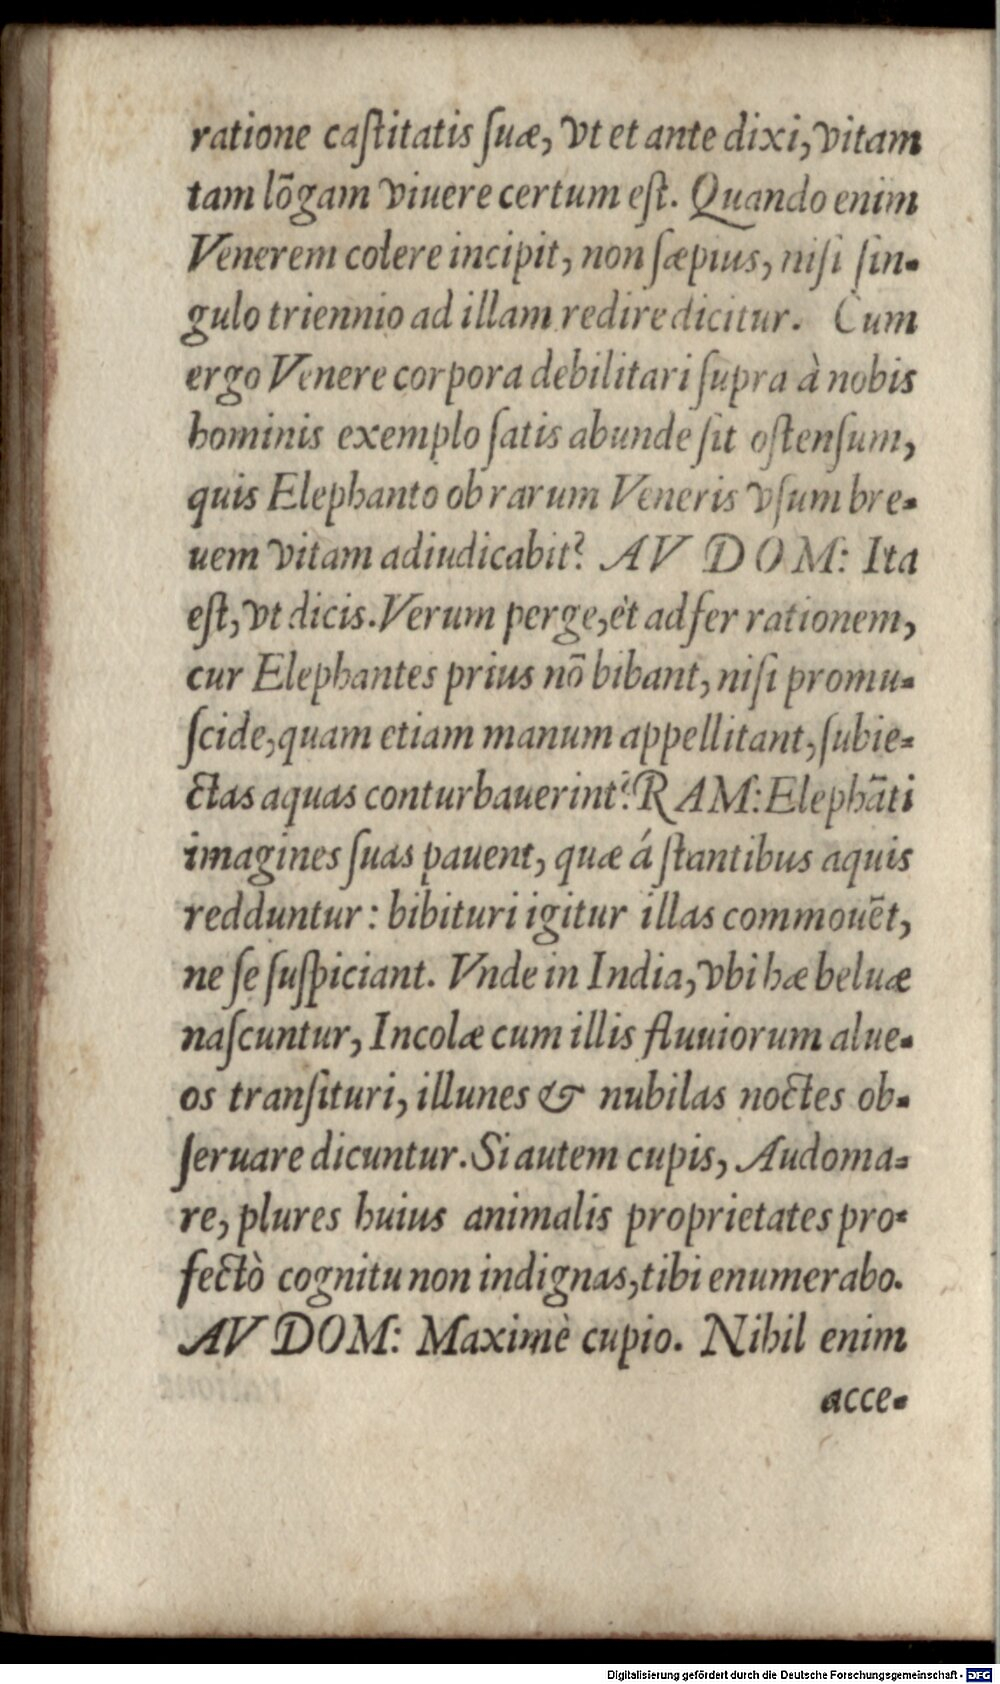 ratione caſtitatis ſuæ, vt et ante dixi, vitam
tam lōgam viuere certum eſt. Quando enim
Venerem colere incipit, non ſæpius, niſi ſin-
gulo triennio ad illam redire dicitur. Cum
ergo Venere corpora debilitari ſupra à nobis
hominis exemplo ſatis abunde ſit oſtenſum,
quis Elephanto ob rarum Veneris vſum bre-
uem vitam adiudicabit? AVDOM: Ita
eſt, vt dicis. Verum perge, èt adfer rationem,
cur Elephantes prius nō bibant, niſi promu-
ſcide, quam etiam manum appellitant, ſubie-
ctas aquas conturbauerint? RAM: Elephāti
imagines ſuas pauent, quæ á ſtantibus aquis
redduntur: bibituri igitur illas commouēt,
ne ſe ſuſpiciant. Vnde in India, vbi hæ beluæ
naſcuntur, Incolæ cum illis fluuiorum alue-
os tranſituri, illunes & nubilas noctes ob-
ſeruare dicuntur. Si autem cupis, Audoma-
re, plures huius animalis proprietates pro-
fectò cognitu non indignas, tibi enumerabo.
AVDOM: Maximè cupio. Nihil enim
acce-
Digitalisierung gefördert durch die Deutsche Forschungsgemeinschaft - DFG